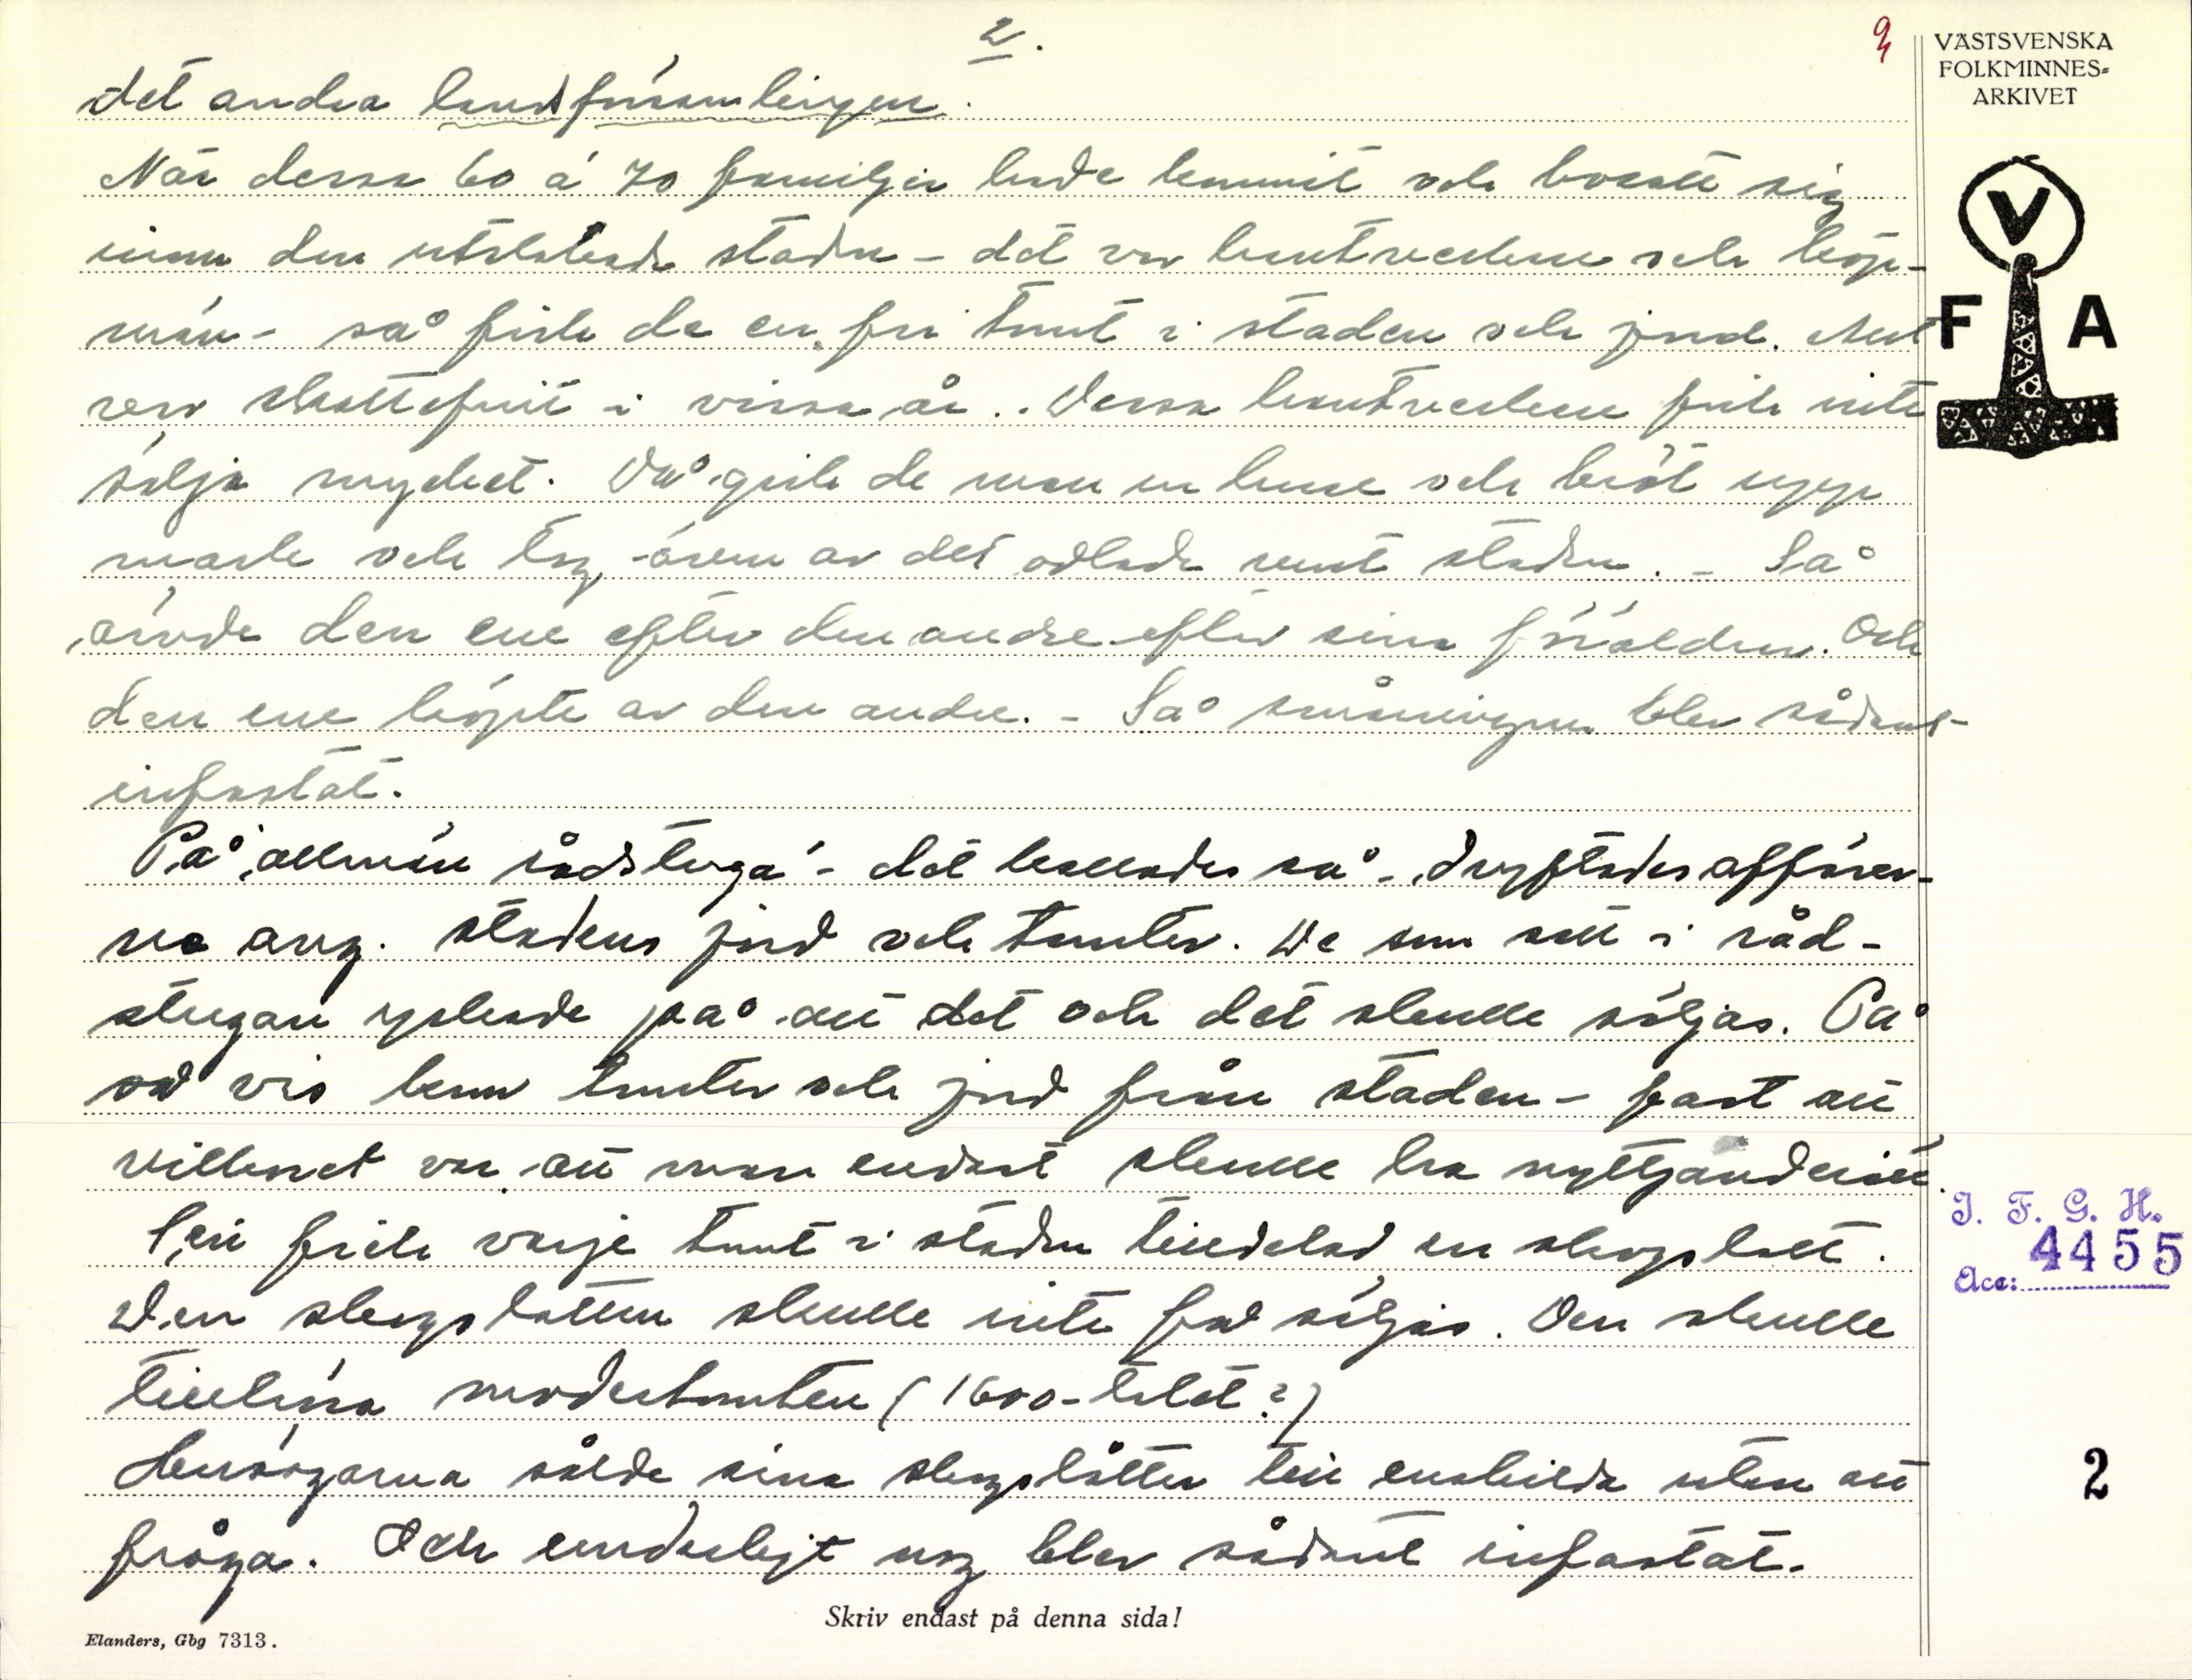 2.
9
VÄSTSVENSKA
FOLKMINNES-
ARKIVET
det andra landsförsamlingen.
När dessa 60 á 70 familjer hade kommit och bosatt sig
inom den utstakade staden - det var hantverkare och köp-
män - så fick de en fri tomt i staden och jord. Allt
var skattefritt i vissa år.. Dessa hantverkare fick inte
sälja mycket. Då gick de man ur huse och bröt upp
mark och tog även av det odlade runt staden. - Så
ärvde den ene efter den andre efter sina föräldrar. Och
den ene köpte av den andre. - Så småningom blev sådant
infastat.
På "allmän rådstuga" - det kallades så - dryftades affärer-
na ang. stadens jord och tomter. De som satt i råd-
stugan yrkade på att det och det skulle säljas. På
så vis kom tomter och jord från staden - fast att
villkoret var att man endast skulle ha nyttjanderätt.
Sen fick varje tomt i staden tilldelad en skogslott.
Den skogslotten skulle inte få säljas. Den skulle
tillhöra moderstomten (1600-talet?)
Husägarna sålde sina skogslotter till enskilda utan att
fråga. Och underligt nog blev sådant infastat.
V
F A
I. F. G. H.
4455
Acc:
2
Skriv endast på denna sida!
Elanders, Gbg 7313.